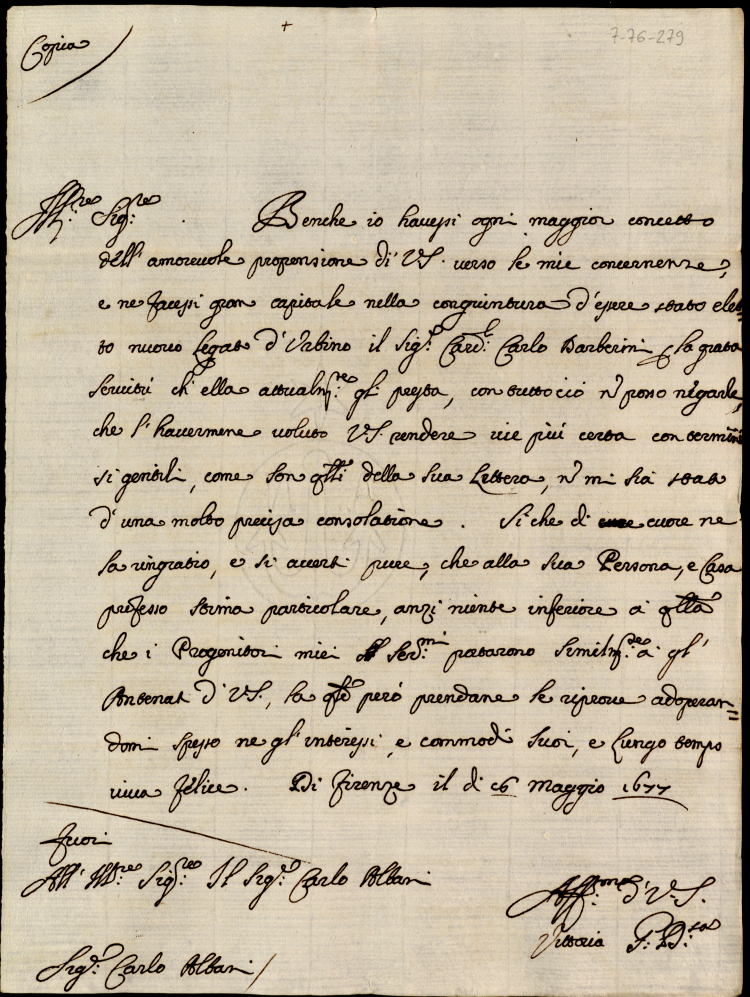 Copia
7-76-279
Ill.re Sig.re Benche io havessi ogni maggior concetto
dell' amorevole propensione di VS. verso le mie concernenze,
e ne facessi gran capitale nella congiuntura d'essere stato elet=
to nuovo Legato d'Urbino il Sig.r Card.l Carlo Barberini p la grata
servitù ch'ella attualm.te gli presta, con tutto ciò nõ posso negarle,
che l'havermene voluto VS. rendere vie più certa con termini
sì gentili, come son qlli della sua Lettera, nõ mi sia stato
d'una molto precisa consolatione. Si che di cuore ne
la ringratio, e si accerti pure, che alla sua Persona, e Casa
professo stima particolare, anzi niente inferiore a qlla
che i Progenitori miei Ser.mi portarono similm.te a gl'
Antenati d'VS., la qle però prendane le riprove adoperan=
domi spesso ne gl'interessi, e commodi suoi, e lungo tempo
viva felice. Di Firenze il dì 16 Maggio 1677
Fuori
All' Ill.re Sig.re Il Sig.r Carlo Albani
Aff.ma d'VS.
Vittoria G. D.sa
Sig.r Carlo Albani